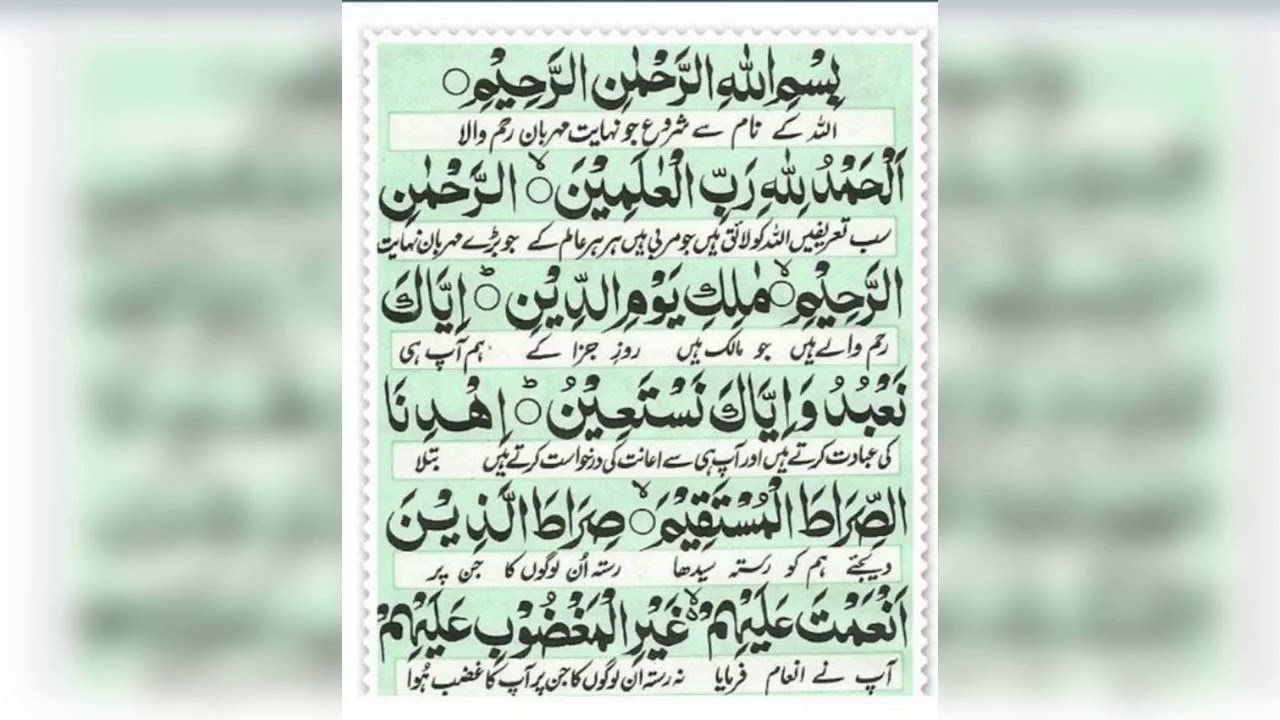 بِسْمِ اللّٰهِ الرَّحْمٰنِ الرَّحِيْمِ○
اللہ کے نام سے شروع جو نہایت مہربان رحم والا
اَلْحَمْدُ لِلّٰهِ رَبِّ الْعٰلَمِيْنَ○ۙ الرَّحْمٰنِ
سب تعریفیں اللہ کو لائق ہیں جو مربی ہیں ہر ہر عالم کے جو بڑے مہربان نہایت
الرَّحِيْمِ○ۙ مٰلِكِ يَوْمِ الدِّيْنِ○ؕ اِيَّاكَ
رحم والے ہیں جو مالک ہیں روزِ جزا کے ہم آپ ہی
نَعْبُدُ وَاِيَّاكَ نَسْتَعِيْنُ○ؕ اِهْدِنَا
کی عبادت کرتے ہیں اور آپ ہی سے اعانت کی درخواست کرتے ہیں بتلا
الصِّرَاطَ الْمُسْتَقِيْمَ○ۙ صِرَاطَ الَّذِيْنَ
دیجئے ہم کو رستہ سیدھا رستہ اُن لوگوں کا جن پر
اَنْعَمْتَ عَلَيْهِمْ○ۙ غَيْرِ الْمَغْضُوْبِ عَلَيْهِمْ
آپ نے انعام فرمایا نہ رستہ ان لوگوں کا جن پر آپ کا غضب ہُوا